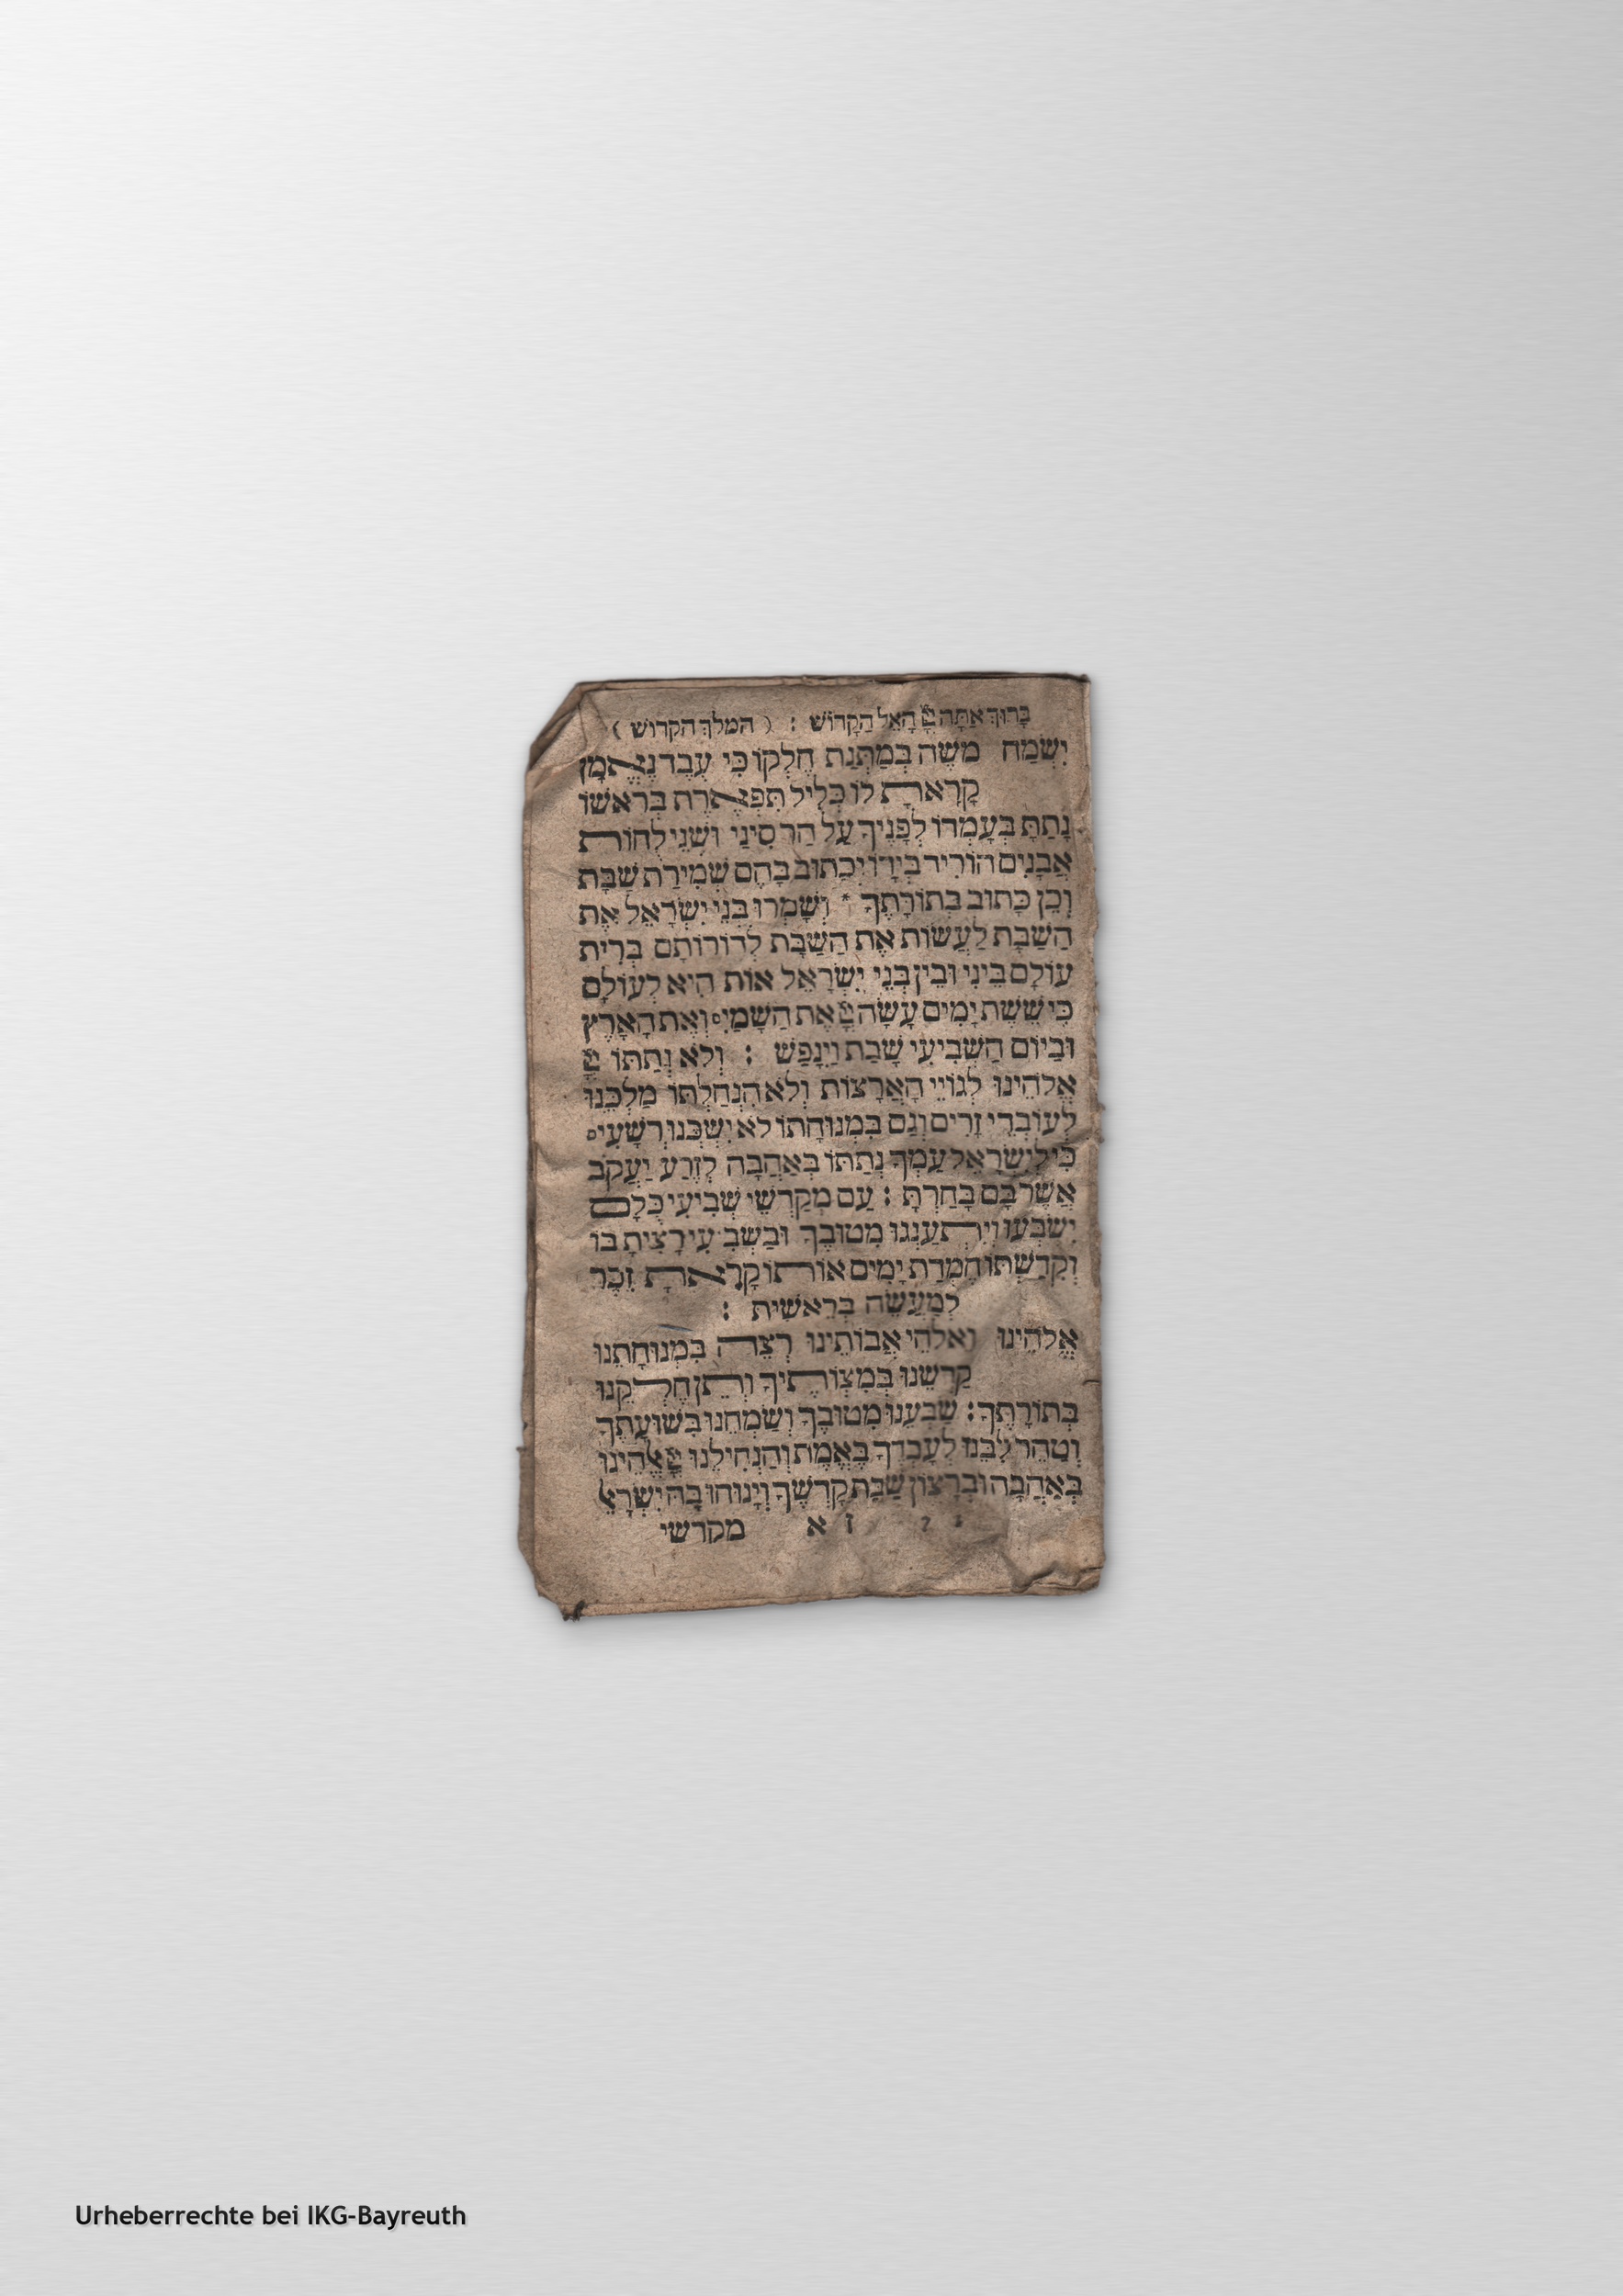 בָּרוּךְ אַתָּה יְיָ הָאֵל הַקָּדוֹשׁ : ( המלך הקדוש )
יִשְׂמַח מֹשֶׁה בְּמַתְּנַת חֶלְקוֹ כִּי עֶבֶד נֶאֱמָן
קָרָאתָ לוֹ כְּלִיל תִּפְאֶרֶת בְּרֹאשׁוֹ
נָתַתָּ בְּעָמְדוֹ לְפָנֶיךָ עַל הַר סִינַי וּשְׁנֵי לֻחוֹת
אֲבָנִים הוֹרִיד בְּיָדוֹ וְכָתוּב בָּהֶם שְׁמִירַת שַׁבָּת
וְכֵן כָּתוּב בְּתוֹרָתֶךָ * וְשָׁמְרוּ בְּנֵי יִשְׂרָאֵל אֶת
הַשַּׁבָּת לַעֲשׂוֹת אֶת הַשַּׁבָּת לְדוֹרוֹתָם בְּרִית
עוֹלָם בֵּינִי וּבֵין בְּנֵי יִשְׂרָאֵל אוֹת הִיא לְעוֹלָם
כִּי שֵׁשֶׁת יָמִים עָשָׂה יְיָ אֶת הַשָּׁמַיִם וְאֶת הָאָרֶץ
וּבַיּוֹם הַשְּׁבִיעִי שָׁבַת וַיִּנָּפַשׁ : וְלֹא נְתַתּוֹ יְיָ
אֱלֹהֵינוּ לְגוֹיֵי הָאֲרָצוֹת וְלֹא הִנְחַלְתּוֹ מַלְכֵּנוּ
לְעוֹבְדֵי זָרִים וְגַם בִּמְנוּחָתוֹ לֹא יִשְׁכְּנוּ רְשָׁעִים
כִּי לְיִשְׂרָאֵל עַמְּךָ נְתַתּוֹ בְּאַהֲבָה לְזֶרַע יַעֲקֹב
אֲשֶׁר בָּם בָּחַרְתָּ : עַם מְקַדְּשֵׁי שְׁבִיעִי כֻּלָּם
יִשְׂבְּעוּ וְיִתְעַנְּגוּ מִטּוּבֶךָ וּבַשְּׁבִיעִי רָצִיתָ בּוֹ
וְקִדַּשְׁתּוֹ חֶמְדַּת יָמִים אוֹתוֹ קָרָאתָ זֵכֶר
לְמַעֲשֵׂה בְרֵאשִׁית :
אֱלֹהֵינוּ וֵאלֹהֵי אֲבוֹתֵינוּ רְצֵה בִמְנוּחָתֵנוּ
קַדְּשֵׁנוּ בְּמִצְוֹתֶיךָ וְתֵן חֶלְקֵנוּ
בְּתוֹרָתֶךָ : שַׂבְּעֵנוּ מִטּוּבֶךָ וְשַׂמְּחֵנוּ בִּשׁוּעָתֶךָ
וְטַהֵר לִבֵּנוּ לְעָבְדְּךָ בֶּאֱמֶת וְהַנְחִילֵנוּ יְיָ אֱלֹהֵינוּ
בְּאַהֲבָה וּבְרָצוֹן שַׁבַּת קָדְשֶׁךָ וְיָנוּחוּ בָהּ יִשְׂרָאֵל
ז א מקדשי
Urheberrechte bei IKG-Bayreuth